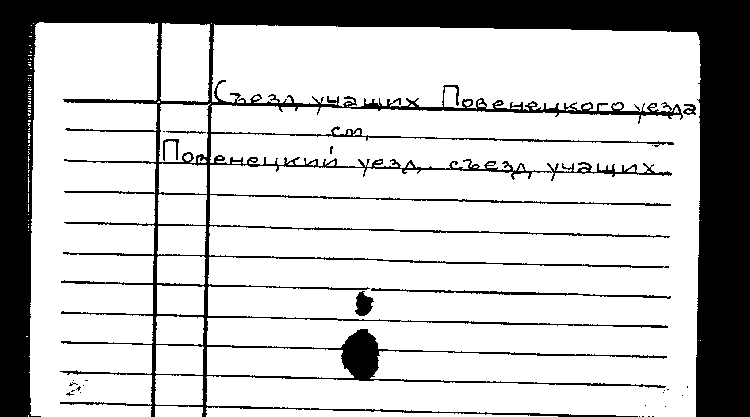 Съезд учащих Повенецкого уезда
см.
Повенецкий уезд. съезд учащих.